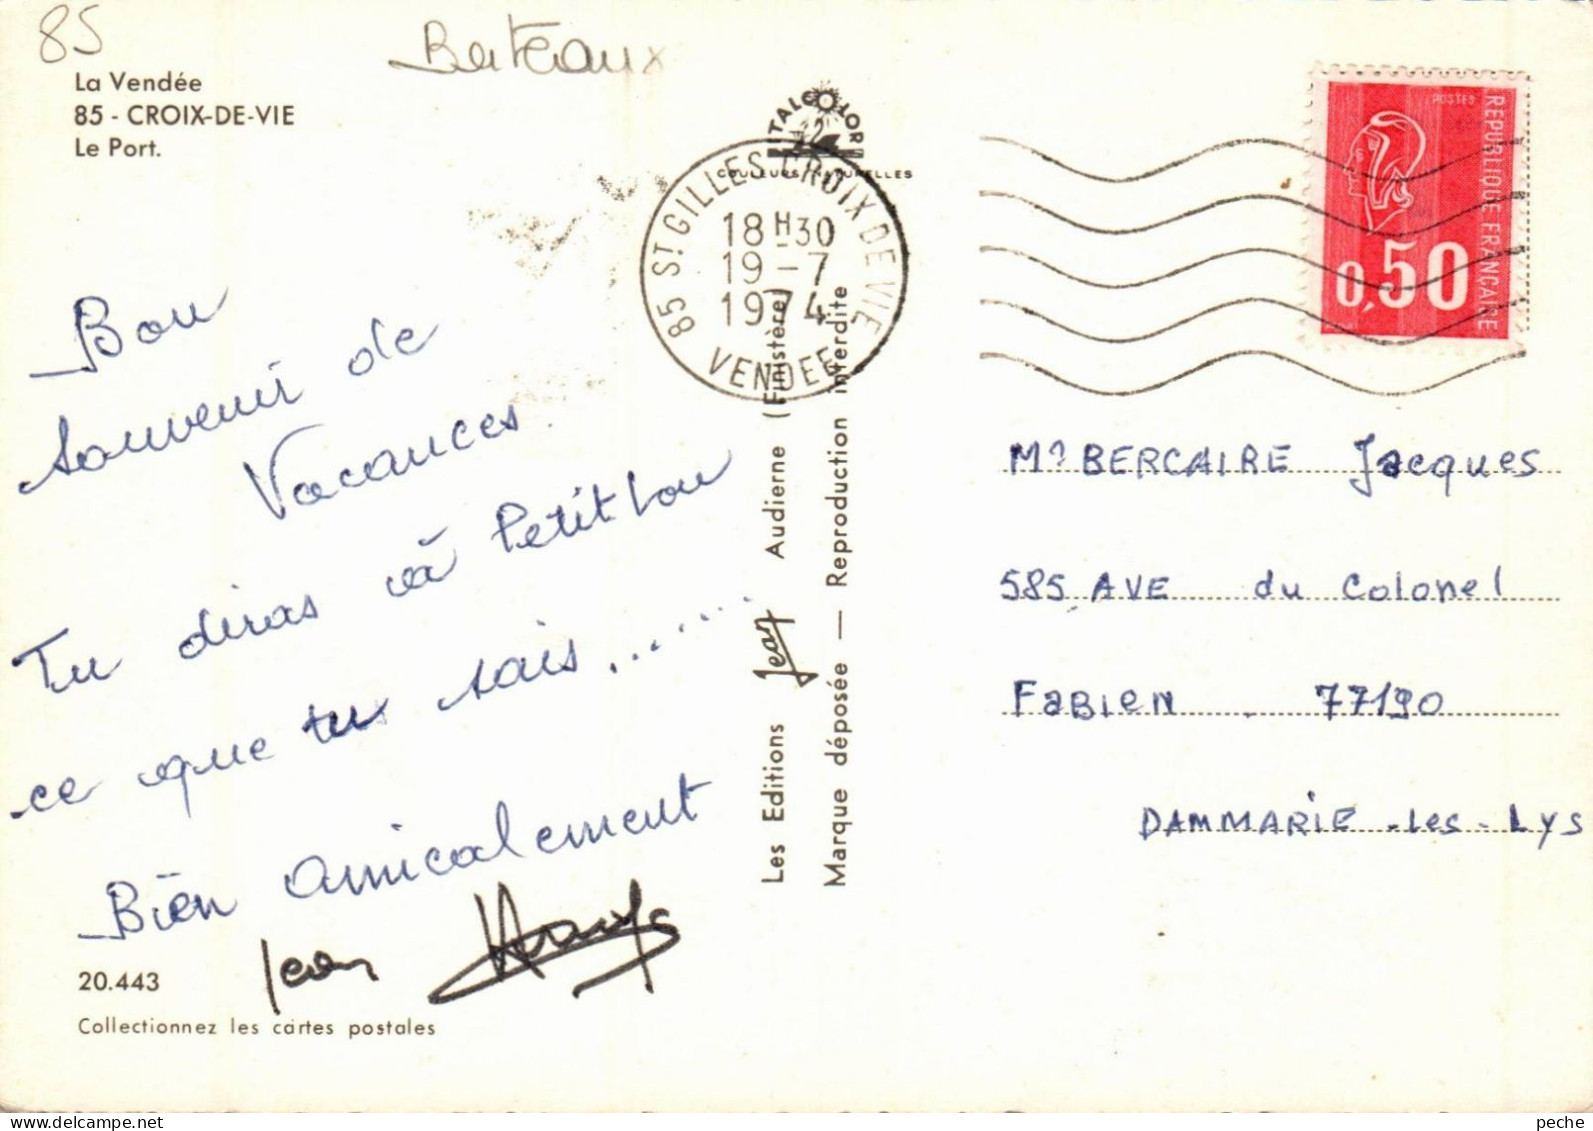 85
Bateaux
La Vendée
85 - CROIX-DE-VIE
Le Port.
ITALCOLOR
COULEURS NATURELLES
85 ST GILLES CROIX DE VIE
18H30
19-7
1974
VENDEE
POSTES
REPUBLIQUE FRANÇAISE
0,50
Bon
souvenir de
Vacances.
Tu diras à Petit Lou
ce que tu sais...........
Bien amicalement
Jean
20.443
Collectionnez les cartes postales
Les Editions Jean Audierne (Finistère)
Marque déposée — Reproduction interdite
Mr BERCAIRE Jacques
585 AVE du Colonel
Fabien . 77190
DAMMARIE-les-Lys
peche